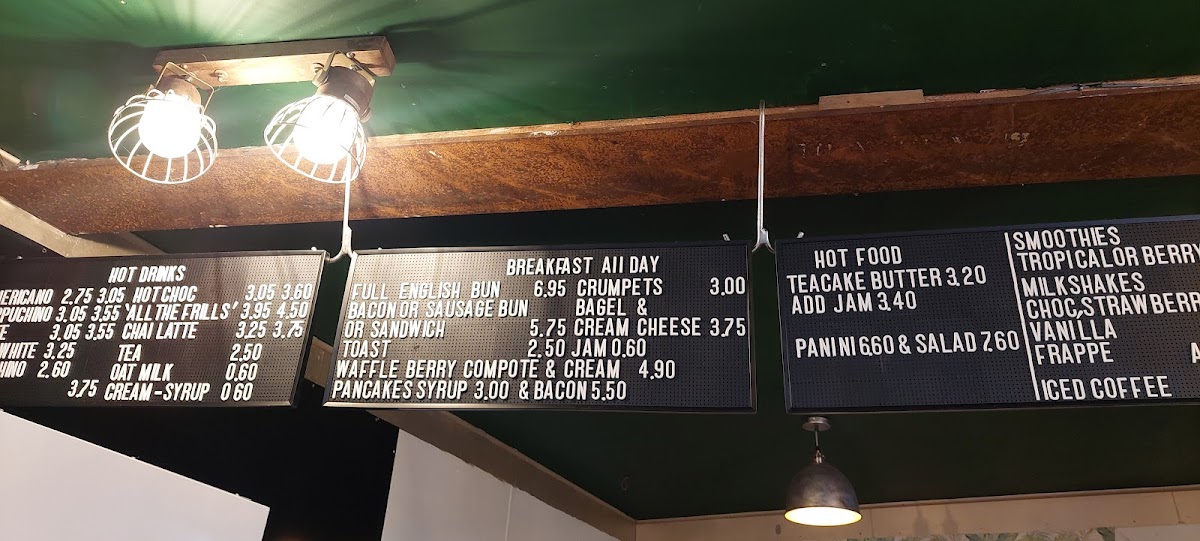 HOT DRINKS
2.75 3.05 HOT CHOC 3.05 3.60
3.05 3.55 'ALL THE FRILLS' 3.95 4.50
3.05 3.55 CHAI LATTE 3.25 3.75
WHITE 3.25 TEA 2.50
2.60 OAT MILK 0.60
3.75 CREAM-SYRUP 0 60
BREAKFAST All DAY
FULL ENGLISH BUN 6.95 CRUMPETS 3.00
BACON OR SAUSAGE BUN BAGEL &
OR SANDWICH 5.75 CREAM CHEESE 3.75
TOAST 2.50 JAM 0.60
WAFFLE BERRY COMPOTE & CREAM 4.90
PANCAKES SYRUP 3.00 & BACON 5.50
HOT FOOD
TEACAKE BUTTER 3.20
ADD JAM 3.40
PANINI 6.60 & SALAD 7.60
SMOOTHIES
TROPICAL OR BERRY
MILKSHAKES
CHOC,STRAWBERR
VANILLA
FRAPPE
ICED COFFEE